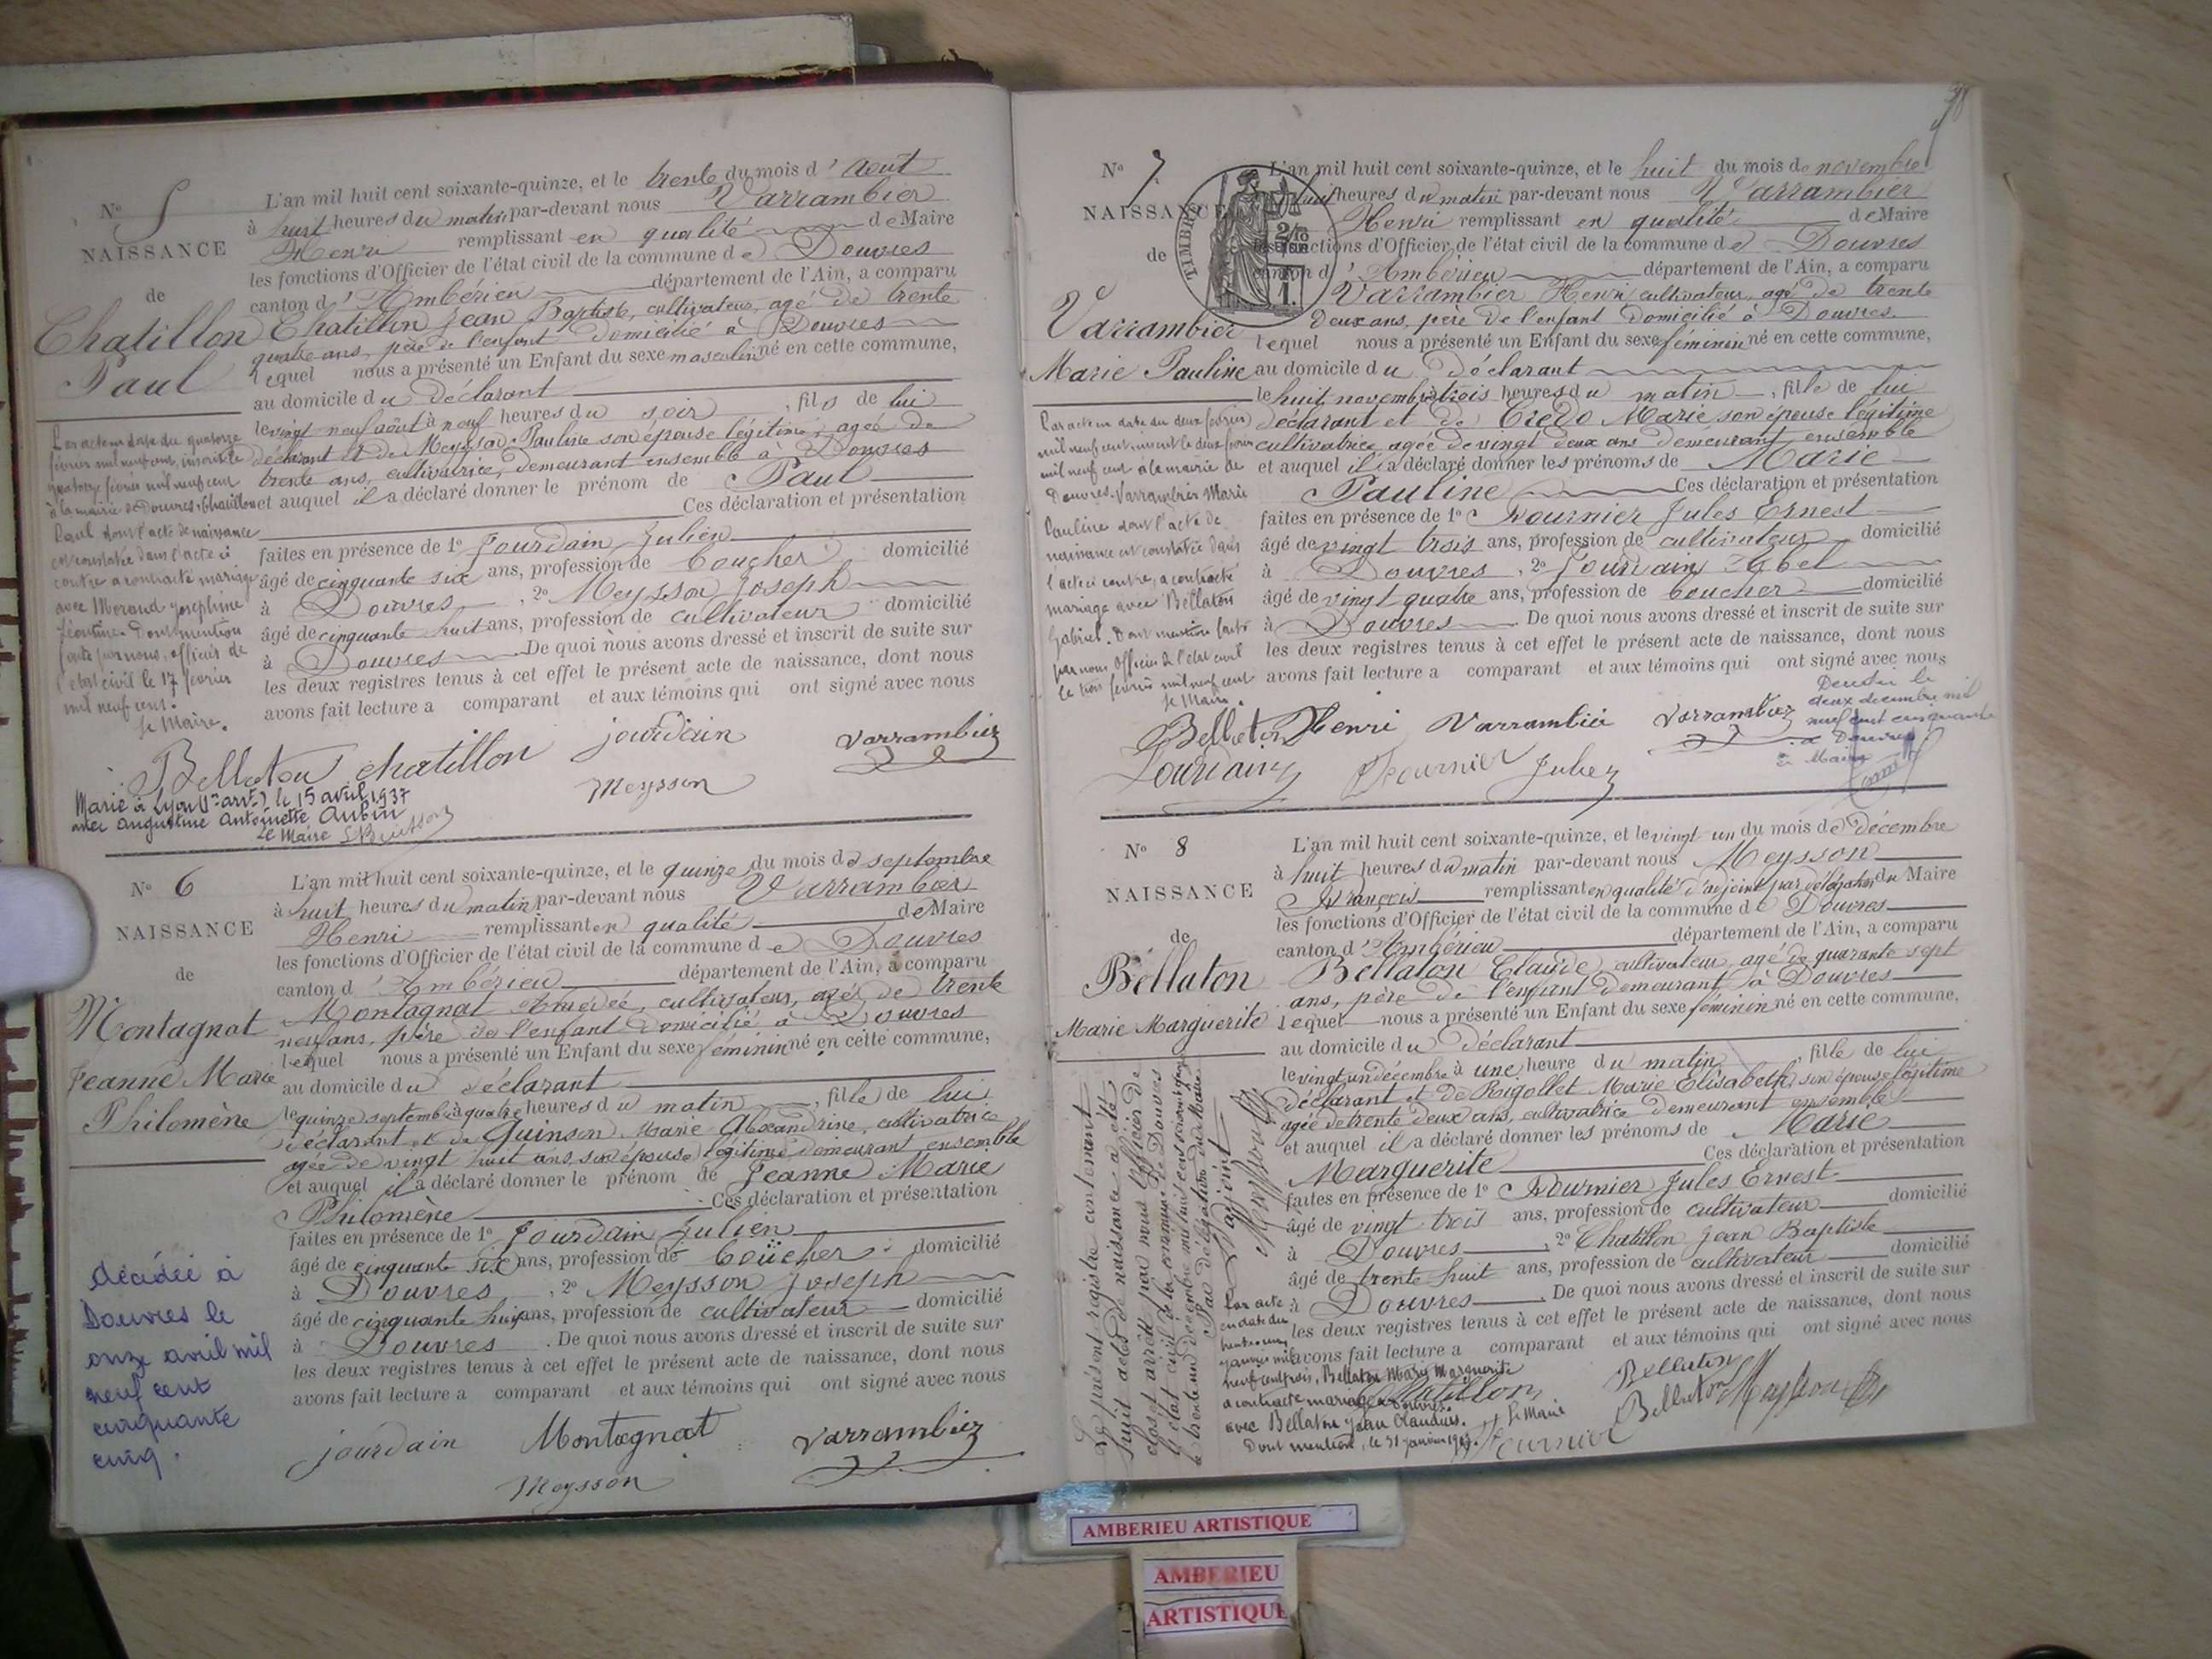 N° 5
NAISSANCE
de
Chatillon
Paul
L'an mil huit cent soixante-quinze, et le trente du mois d'Août
à huit heures du matin par-devant nous Varrambier
Henri remplissant en qualité de Maire
les fonctions d'Officier de l'état civil de la commune de Douvres
canton d'Ambérieu département de l'Ain, a comparu
Chatillon Jean Baptiste, cultivateur, agé de trente
quatre ans, père de l'enfant domicilié à Douvres
lequel nous a présenté un Enfant du sexe masculin né en cette commune,
au domicile du déclarant
le vingt neuf août à neuf heures du soir, fils de lui
déclarant et de Meysson Pauline son épouse légitime, agée de
trente ans, cultivatrice, demeurant ensemble à Douvres
et auquel il a déclaré donner le prénom de Paul
Ces déclaration et présentation
faites en présence de 1° Jourdain Julien
âgé de cinquante six ans, profession de boucher domicilié
à Douvres, 2° Meysson Joseph
âgé de cinquante huit ans, profession de cultivateur domicilié
à Douvres De quoi nous avons dressé et inscrit de suite sur
les deux registres tenus à cet effet le présent acte de naissance, dont nous
avons fait lecture a comparant et aux témoins qui ont signé avec nous
Par acte en date du quatorze
février mil neuf cent, inscrit le
quatorze février mil neuf cent
à la mairie de Douvres, Chatillon
Paul dont l'acte de naissance
est constatée dans l'acte ci
contre a contracté mariage
avec Morand Joséphine
Dont mention
faite par nous, officier de
l'état civil le 17 février
mil neuf cent.
Le Maire.
Bellaton chatillon jourdain Varrambier
Meysson
Marié à Lyon (1er arrt) le 15 avril 1937
avec Augustine Antoinette Aubin
Le Maire
N° 6
NAISSANCE
de
Montagnat
Jeanne Marie
Philomène
L'an mil huit cent soixante-quinze, et le quinze du mois de septembre
à huit heures du matin par-devant nous Varrambier
Henri remplissant en qualité de Maire
les fonctions d'Officier de l'état civil de la commune de Douvres
canton d'Ambérieu département de l'Ain, a comparu
Montagnat Amédée, cultivateur, agé de trente
neuf ans, père de l'enfant domicilié à Douvres
lequel nous a présenté un Enfant du sexe féminin né en cette commune,
au domicile du déclarant
le quinze septembre à quatre heures du matin, fille de lui
déclarant et de Quinson Marie Alexandrine, cultivatrice
agée de vingt huit ans, son épouse légitime demeurant ensemble
et auquel il a déclaré donner le prénom de Jeanne Marie
Philomène Ces déclaration et présentation
faites en présence de 1° Jourdain Julien
âgé de cinquante six ans, profession de boücher domicilié
à Douvres, 2° Meysson Joseph
âgé de cinquante huit ans, profession de cultivateur domicilié
à Douvres. De quoi nous avons dressé et inscrit de suite sur
les deux registres tenus à cet effet le présent acte de naissance, dont nous
avons fait lecture a comparant et aux témoins qui ont signé avec nous
décédée à
Douvres le
onze avril mil
neuf cent
cinquante
cinq.
jourdain Montagnat Varrambier
Meysson
N° 7
NAISSANCE
de
Varrambier
Marie Pauline
TIMBRE
2/10
1.
L'an mil huit cent soixante-quinze, et le huit du mois de novembre
à huit heures du matin par-devant nous Varrambier
Henri remplissant en qualité de Maire
les fonctions d'Officier de l'état civil de la commune de Douvres
canton d'Ambérieu département de l'Ain, a comparu
Varrambier Henri cultivateur, agé de trente
deux ans, père de l'enfant domicilié à Douvres.
lequel nous a présenté un Enfant du sexe féminin né en cette commune,
au domicile du déclarant
le huit novembre à trois heures du matin, fille de lui
déclarant et de Credo Marie son épouse légitime
cultivatrice agée de vingt deux ans demeurant ensemble
et auquel il a déclaré donner les prénoms de Marie
Pauline Ces déclaration et présentation
faites en présence de 1° Fournier Jules Ernest
âgé de vingt trois ans, profession de cultivateur domicilié
à Douvres, 2° Jourdain Abel
âgé de vingt quatre ans, profession de boucher domicilié
à Douvres De quoi nous avons dressé et inscrit de suite sur
les deux registres tenus à cet effet le présent acte de naissance, dont nous
avons fait lecture a comparant et aux témoins qui ont signé avec nous
Par acte en date du deux février
mil neuf cent, inscrit le deux février
mil neuf cent à la mairie de
Douvres. Varrambier Marie
Pauline dont l'acte de
naissance est constatée dans
l'acte ci contre, a contracté
mariage avec Bellaton
Gabriel. Dont mention faite
par nous Officier de l'état civil
le trois février mil neuf cent
Le Maire.
Décédée le
deux décembre mil
neuf cent cinquante
à Douvres
Le Maire
Bellaton Henri Varrambier Varrambier
Jourdain Fournier Jules
N° 8
NAISSANCE
de
Bellaton
Marie Marguerite
L'an mil huit cent soixante-quinze, et le vingt un du mois de décembre
à huit heures du matin par-devant nous Meysson
François remplissant en qualité d'adjoint par délégation du Maire
les fonctions d'Officier de l'état civil de la commune de Douvres
canton d'Ambérieu département de l'Ain, a comparu
Bellaton Claude, cultivateur, agé de quarante sept
ans, père de l'enfant demeurant à Douvres
lequel nous a présenté un Enfant du sexe féminin né en cette commune,
au domicile du déclarant
le vingt un décembre à une heure du matin, fille de lui
déclarant et de Rigollet Marie Elisabeth son épouse légitime
agée de trente deux ans, cultivatrice demeurant ensemble
et auquel il a déclaré donner les prénoms de Marie
Marguerite Ces déclaration et présentation
faites en présence de 1° Fournier Jules Ernest
âgé de vingt trois ans, profession de cultivateur domicilié
à Douvres, 2° Chatillon Jean Baptiste
âgé de trente huit ans, profession de cultivateur domicilié
à Douvres. De quoi nous avons dressé et inscrit de suite sur
les deux registres tenus à cet effet le présent acte de naissance, dont nous
avons fait lecture a comparant et aux témoins qui ont signé avec nous
Le présent registre contenant
huit actes de naissance a été
clos et arrêté par nous Officier de
l'état civil de la commune de Douvres
le trente un décembre mil huit cent soixante quinze
Par délégation du Maire
L'adjoint
Meysson
Par acte
en date du
trente un
janvier mil
neuf cent trois, Bellaton Marie Marguerite
a contracté mariage à Douvres
avec Bellaton Jean Claudius.
Dont mention, le 31 janvier 1903.
Le Maire
Chatillon Bellaton
Bellaton Meysson
Fournier
AMBERIEU ARTISTIQUE
AMBERIEU
ARTISTIQUE